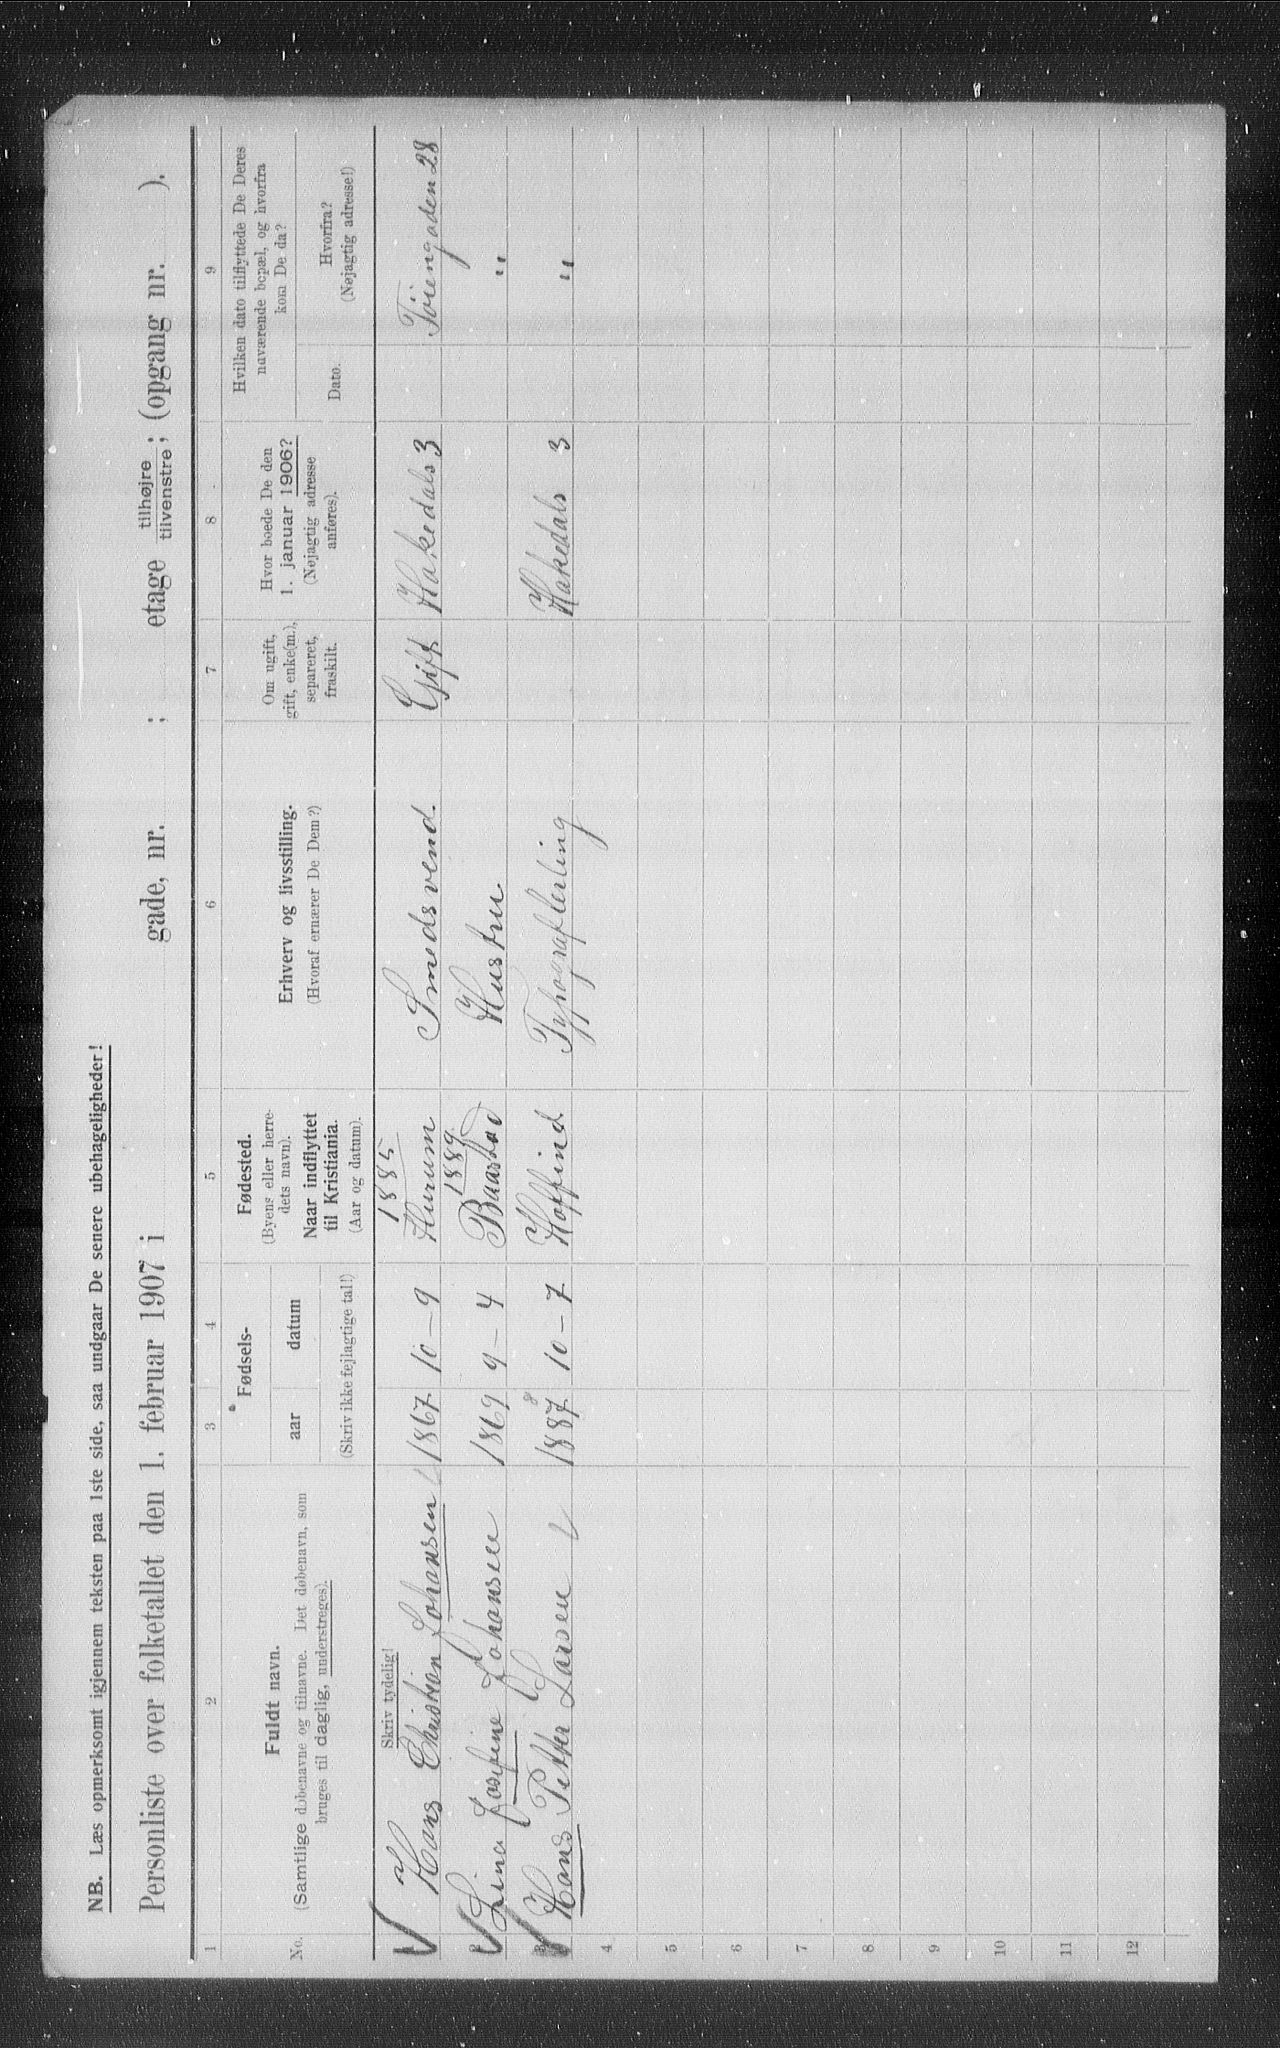 NB. Læs opmerksomt igjennem teksten paa 1ste side, saa undgaar De senere ubehageligheder!
Personliste over folketallet den 1. februar 1907 i gade, nr. ; etage tilhøjre tilvenstre; (opgang nr. ).
1 2 3 4 5 6 7 8 9
No.
Fuldt navn.
(Samtlige døbenavne og tilnavne. Det døbenavn, som
bruges til daglig, understreges).
Fødsels-
aar datum
(Skriv ikke fejlagtige tal!)
Fødested.
(Byens eller herre-
dets navn).
Naar indflyttet
til Kristiania.
(Aar og datum).
Erhverv og livsstilling.
(Hvoraf ernærer De Dem?)
Om ugift,
gift, enke(m.),
separeret,
fraskilt.
Hvor boede De den
1. januar 1906?
(Nøjagtig adresse
anføres).
Hvilken dato tilflyttede De Deres
nuværende bopæl, og hvorfra
kom De da?
Dato.
Hvorfra?
(Nøjagtig adresse!)
Skriv tydelig!
1885
Hans Christian Johansen 1867 10-9 Hurum Smedsvend. Gift Hakedals 3 Töiengaden 28
1889
2 Lina Josefine Johansen 1869 9-4 Baastad Hustru "
3 Hans Petter Larsen 1887 8 10-7 Hoffind Typograflerling Hakedals 3 "
4
5
6
7
8
9
10
11
12